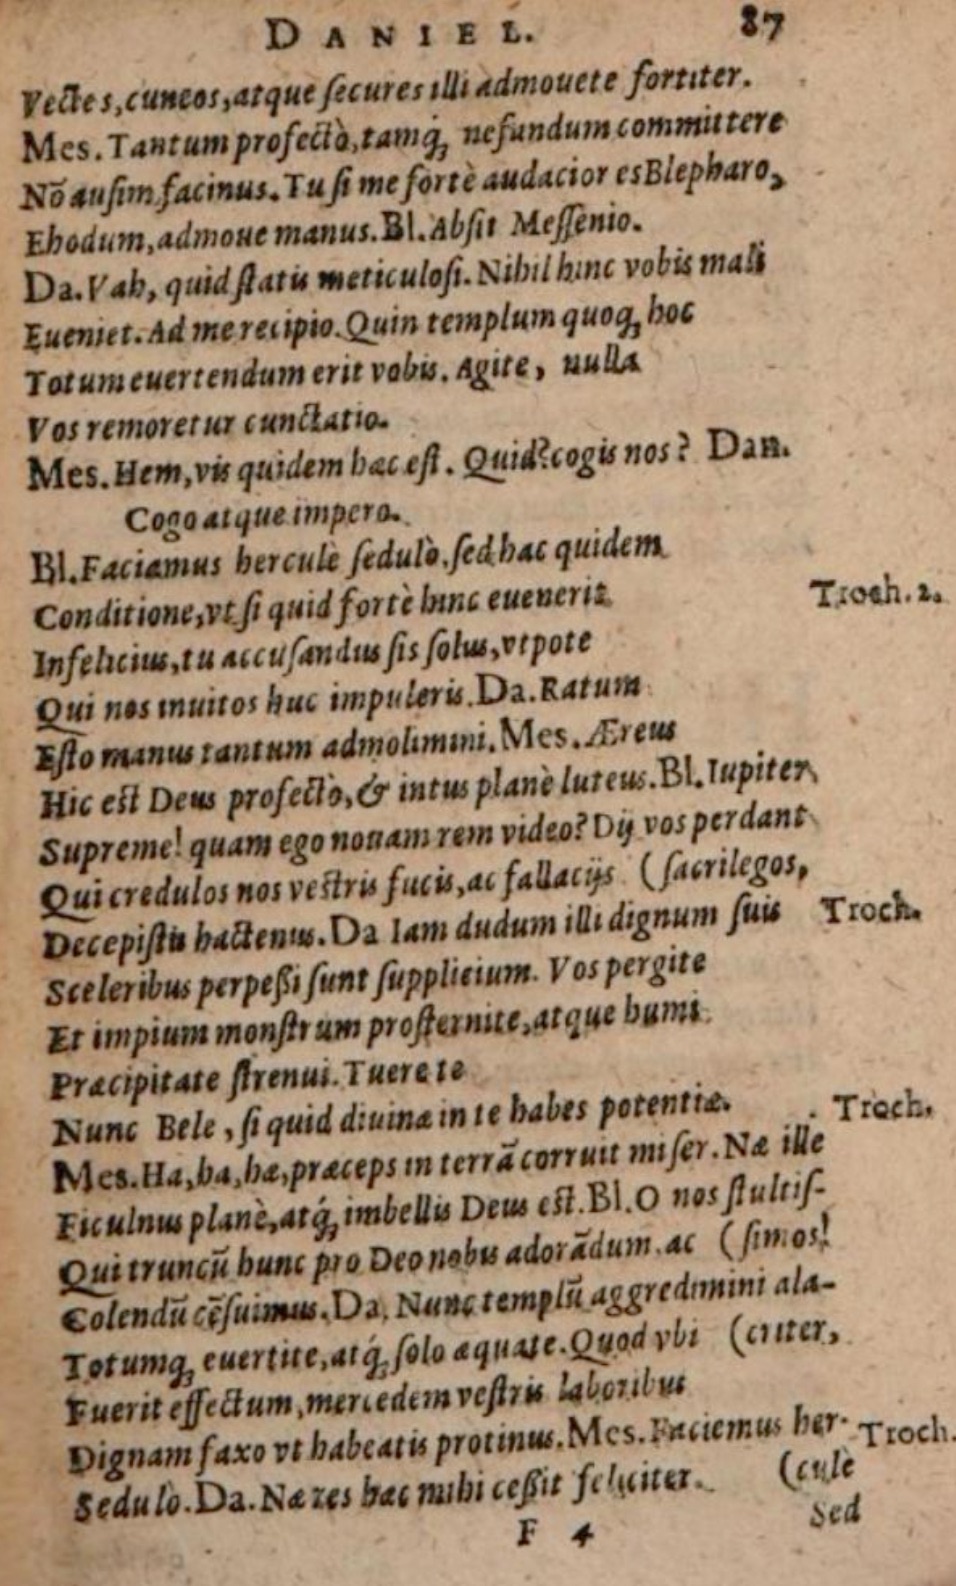 DANIEL. 87
Vectes, cuneos, atque ſecures illi admouete fortiter.
Mes. Tantum profectò, tamq́; nefandum committere
Nō auſim facinus. Tu ſi me fortè audacior es Blepharo,
Ehodum, admoue manus. Bl. Abſit Meſſenio.
Da. Vah, quid ſtatis meticuloſi. Nihil hinc vobis mali
Eueniet. Ad me recipio. Quin templum quoq; hoc
Totum euertendum erit vobis. Agite, nulla
Vos remoretur cunctatio.
Mes. Hem, vis quidem hæc eſt. Quid? cogis nos? Dan.
Cogo atque impero.
Bl. Faciamus herculè ſedulò. ſed hac quidem
Conditione, vt ſi quid fortè hinc euenerit Troch. 2.
Infelicius, tu accuſandus ſis ſolus, vtpote
Qui nos inuitos huc impuleris. Da. Ratum
Eſto manus tantum admolimini. Mes. Æreus
Hic eſt Deus profectò, & intus planè luteus. Bl. Iupiter
Supreme! quam ego nouam rem video? Dij vos perdant
Qui credulos nos veſtris fucis, ac fallacijs (ſacrilegos,
Decepiſtis hactenus. Da Iam dudum illi dignum ſuis Troch.
Sceleribus perpeßi ſunt ſupplicium. Vos pergite
Et impium monſtrum proſternite, atque humi
Præcipitate ſtrenui. Tuere te
Nunc Bele, ſi quid diuinæ in te habes potentiæ. Troch.
Mes. Ha, ha, hæ, præceps in terrā corruit miſer. Næ ille
Ficulnus planè, atq́; imbellis Deus eſt. Bl. O nos ſtultiſ-
Qui truncū hunc pro Deo nobis adorādum, ac (ſimos!
Colendū cēſuimus. Da. Nunc templū aggredimini ala-
Totumq; euertite, atq́; ſolo æquate. Quod vbi (criter,
Fuerit effectum, mercedem veſtris laboribus
Dignam faxo vt habeatis protinus. Mes. Faciemus her- Troch.
Sedulò. Da. Næ res hæc mihi ceßit feliciter. (culè
F 4 Sed